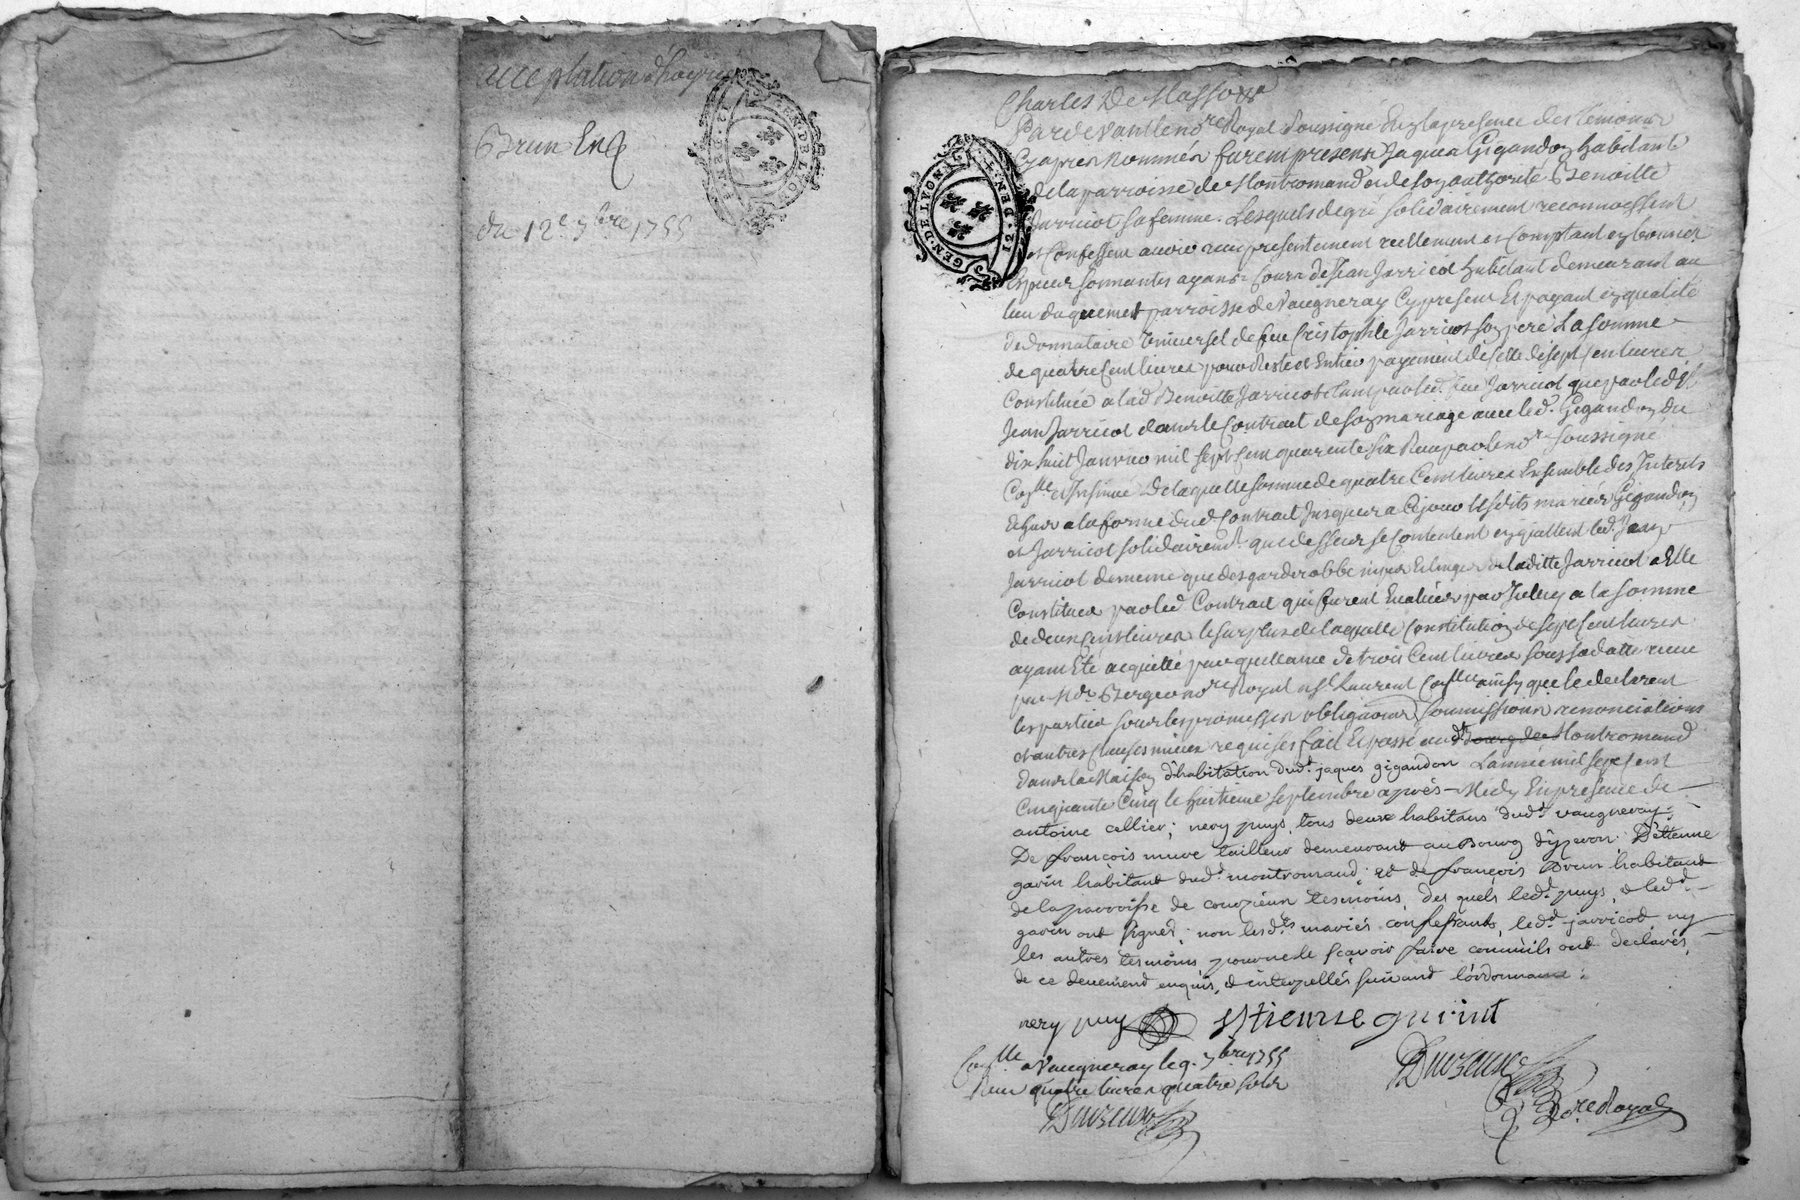 acceptation d'hoyrie
Brun Enq
du 12e 7bre 1755
GEN. DE LYON
Charles De Masso
Pardevant le nore Royal soussigné En la presence des temoins
Cy apres nommés furent presens Jaques Gigandon habitant
de la parroisse de Montromand et de son authorité Benoitte
Jarricot sa femme. Lesquels de gré solidairement reconnoessent
et Confessent avoir reçu presentement réellement et comptant en bonnes
Especes sonnantes ayans Cours de Jean Jarricot habitant demeurant au
lieu du quemet parroisse de Vaugneray Cy present Et payant en qualité
de donnataire Universel de feu Cristophle Jarricot son pere La somme
de quatre Cent livres pour Reste et Entier payement de Celle de sept Cent livres
Constituée a lad. Benoitte Jarricot tant par led. feu Jarricot que par led.
Jean Jarricot dans le Contract de son mariage avec led. Gigandon du
dix huit Janvier mil sept Cent quarente six Reçu par le nore soussigné
Conlle et Insinué De laquelle somme de quatre Cent livres Ensemble des Interets
Echus a la forme dud. Contract Jusques a Cejour lesdits mariés Gigandon
et Jarricot solidairemt. que dessus se Contentent en quittent led. Jean
Jarricot de meme que des garderobbe nipes Et linges de laditte Jarricot a Elle
Constitués par led. Contract qui furent Evalués par Icelluy a la somme
de deux Cent livres le surplus de laquelle Constitution de sept Cent livres
ayant Eté acquitté par quittance de trois Cent livres sous sa datte reçue
par Me Berger nore Royal a St Laurent Conllée ainsy que le declarent
les parties sous les promesses obligations soumissions renonciations
et autres Clauses mises requises fait Et passé aud. Montromand
dans la Maison d'habitation dud. jaques gigandon L'année mil sept Cent
Cinquante Cinq le huitieme septembre après Midy En presence de
antoine cellier; nery puys, tous deux habitans dud. vaugneray;
De françois mure tailleur demeurant au Bourg d'yzeron; D'étienne
gavin habitant dud. montromand; et de françois Brun habitant
de la parroisse de courzieux tesmoins, Des quels led. puys, & led.
gavin ont signés; non lesdts mariés confessants, led. jarricot ny
les autres tesmoins pour ne le sçavoir faire comm'ils ont declarés,
de ce deuement enquis, & interpellés suivant l'ordonnance.
nery puy
Conlle a Vaugneray le 9. 7bre 1755
Reçu quatre livres quatre sols
nore Royal